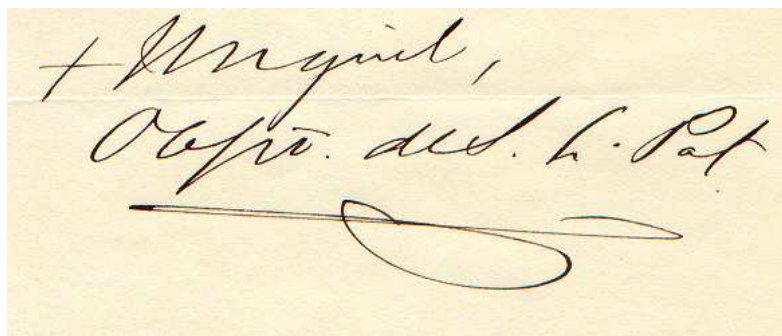 + Miguel,
Obpo. de S. L. Pot